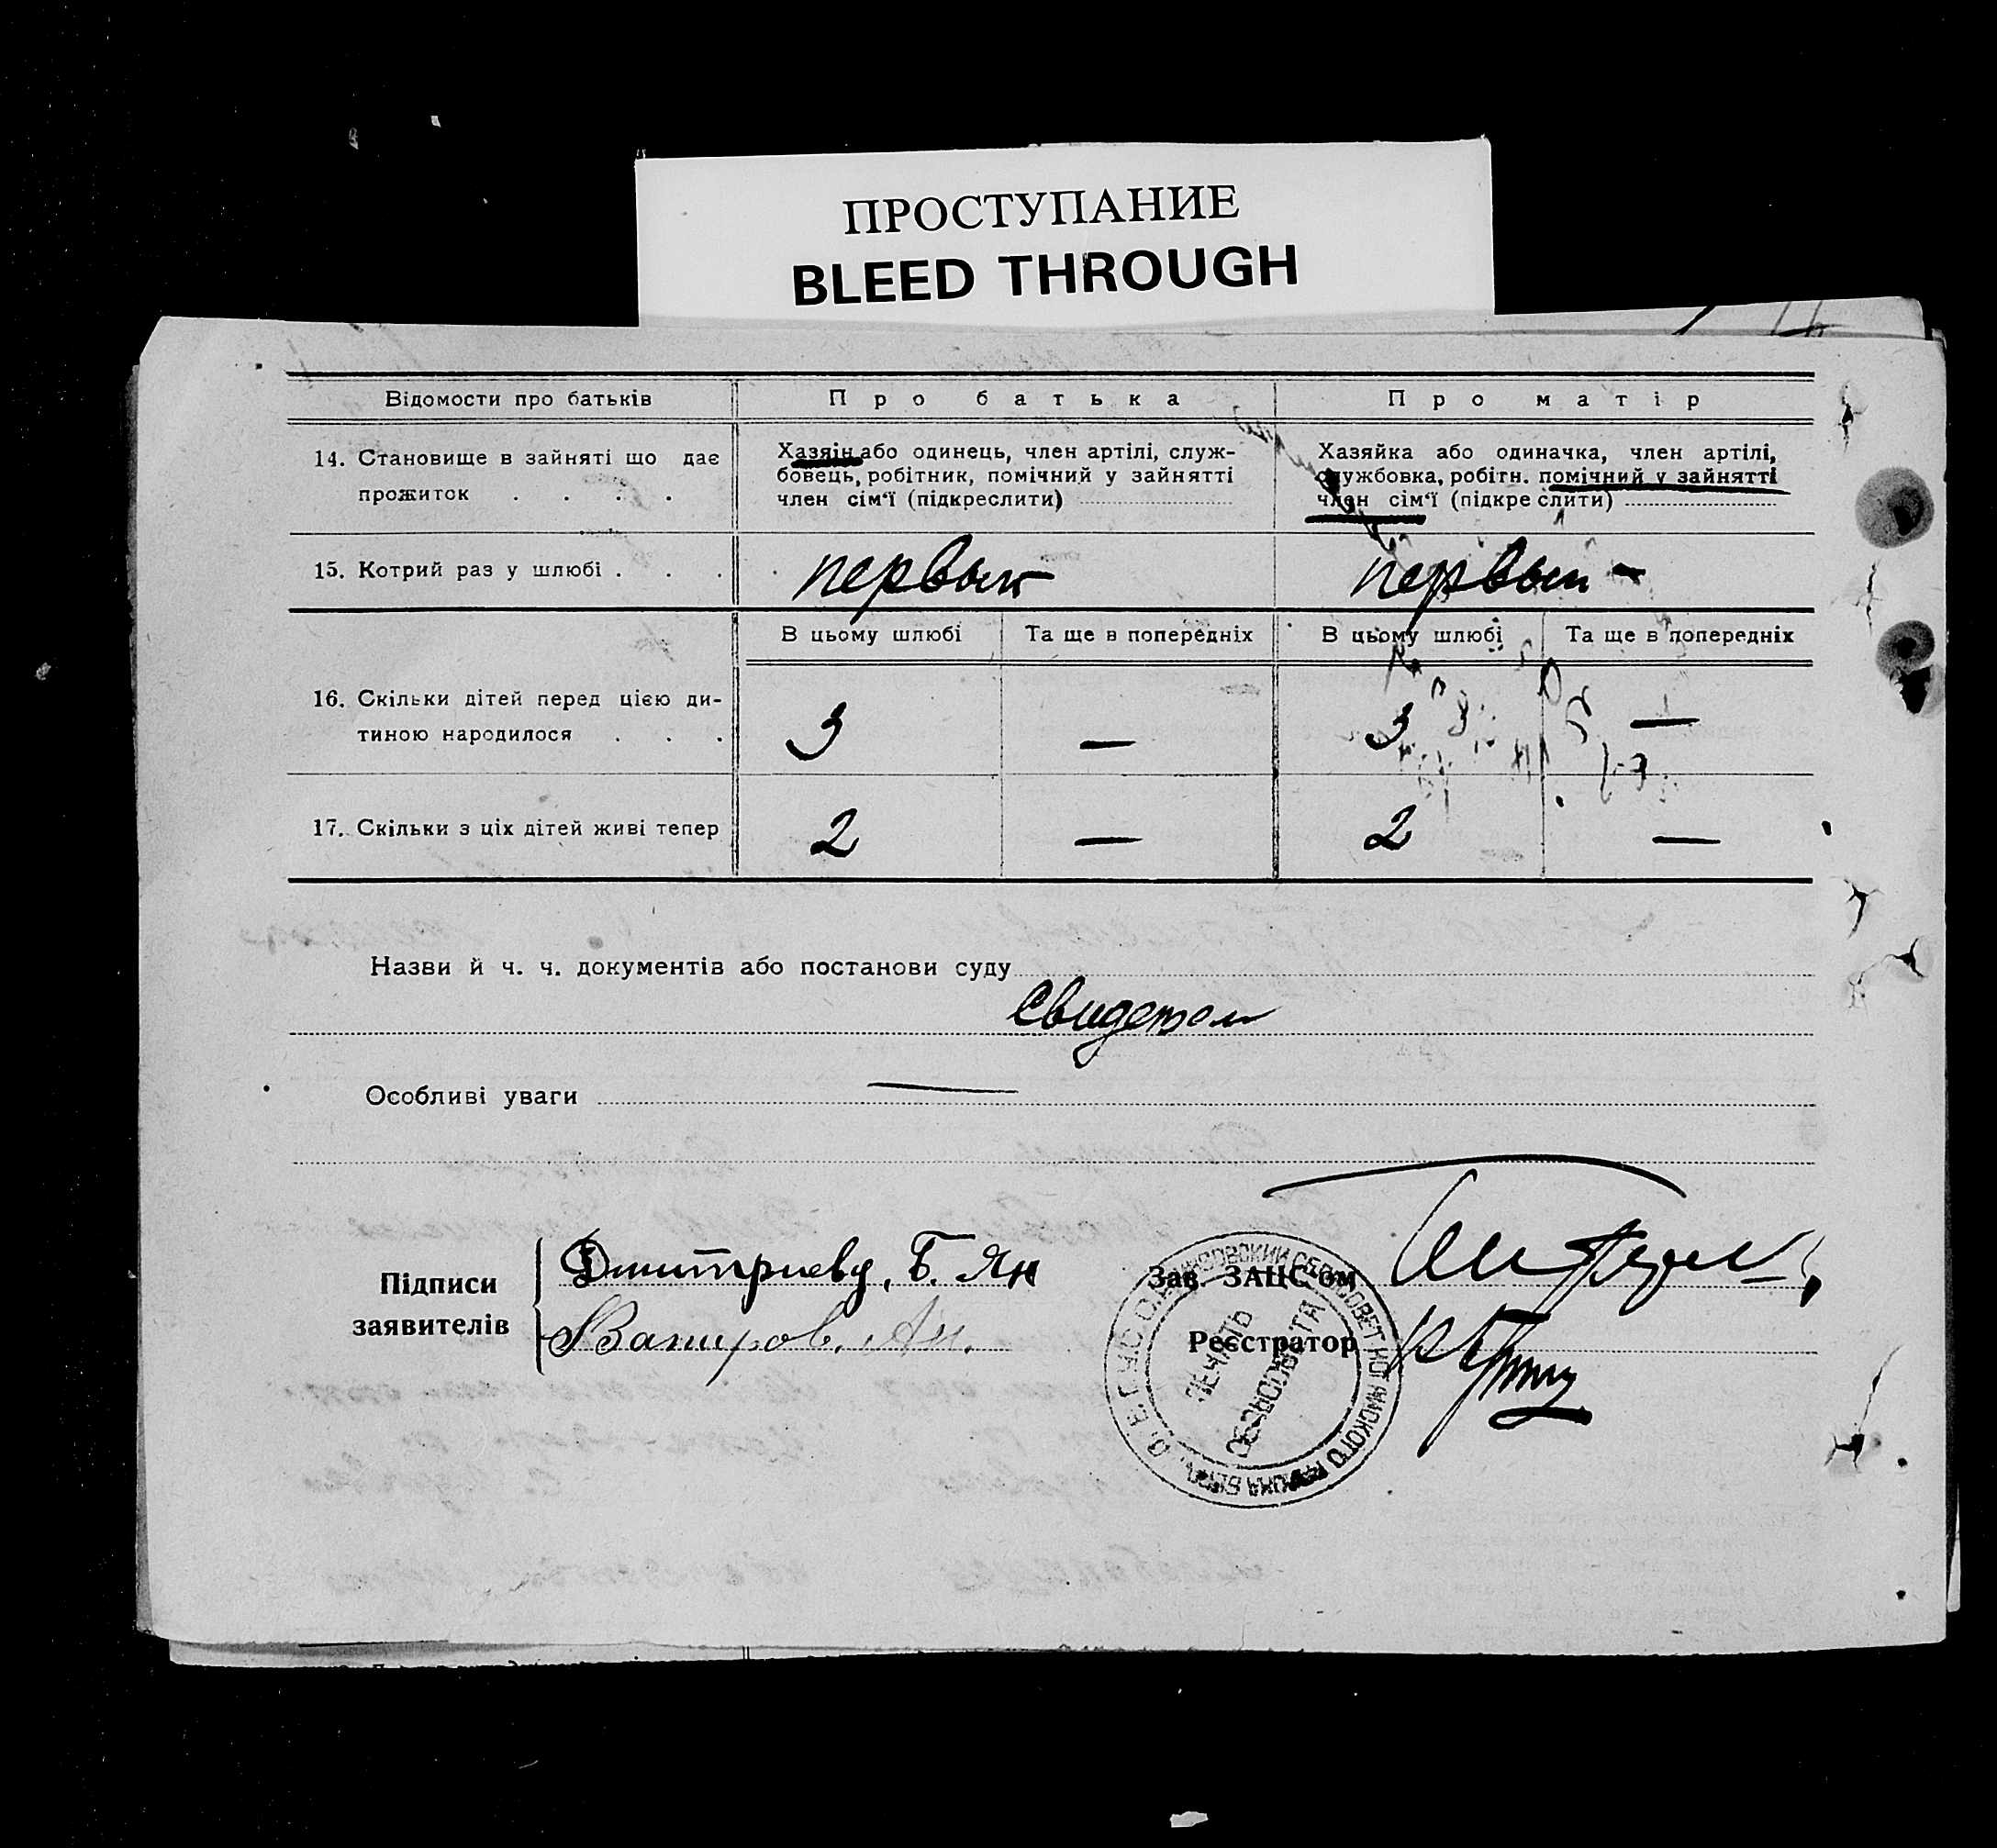 ПРОСТУПАНИЕ
BLEED THROUGH
Відомости про батьків
Про батька
Про матір
14. Становище в зайняті що дає
прожиток . . . .
Хазяін або одинець, член артілі, служ-
бовець, робітник, помічний у зайнятті
член сім'ї (підкреслити)
Хазяйка або одиначка, член артілі,
службовка, робітн. помічний у зайнятті
член сім'ї (підкреслити)
15. Котрий раз у шлюбі . . .
первый
первый -
В цьому шлюбі
Та ще в попередніх
В цьому шлюбі
Та ще в попередніх
16. Скільки дітей перед цією ди-
тиною народилося . . .
3
—
3
—
17. Скільки з ціх дітей живі тепер
2
—
2
—
Назви й ч. ч. документів або постанови суду
Свидетели
Особливі уваги —
Підписи
заявителів
Дмитриевд. Б. Ян
Вапиров. Ан.
Зав. ЗАЦС'ом
Реєстратор
ПЕЧАТЬ
СЕЛЬСОВЕТА